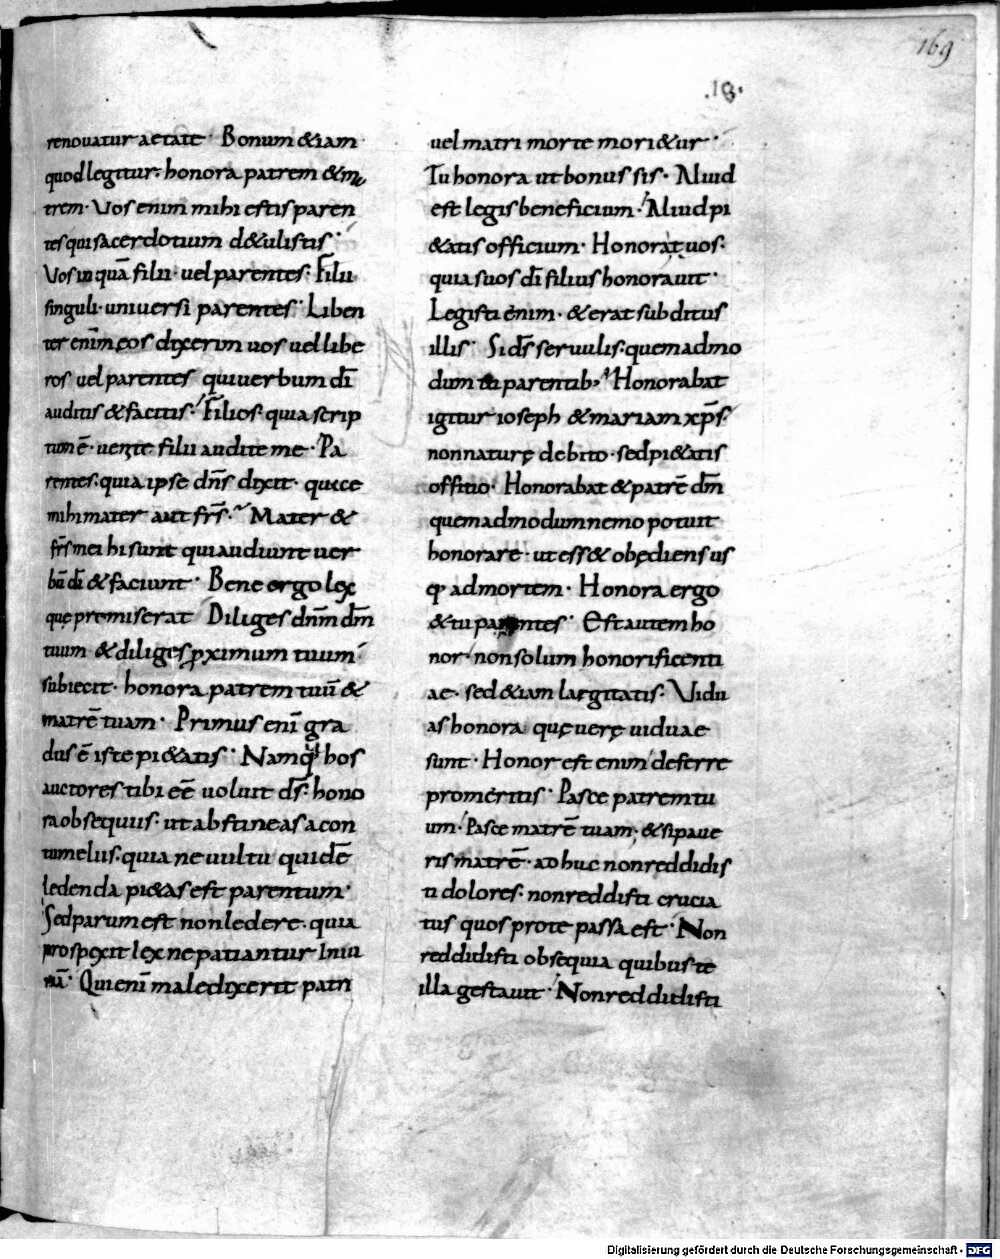 169
.18.
renouatur aetate· Bonum &iam
quod legitur· honora patrem & ma
trem· Vos enim mihi estis paren
tes qui sacerdotium d&ulistis·
Vos inquā filii· uel parentes· Filii
singuli· uniuersi parentes· Liben
ter enīm eos dixerim uos uel libe
ros uel parentes qui uerbum dī
auditis & facitis· Filios· quia scrip
tum ē· uenite filii audite me· Pa
rentes· quia ipse dn̄s dixit· quęcę
mihi mater aut fr̄s· Mater &
fr̄s mei hi sunt qui audiunt uer
bū dī & faciunt· Bene ergo lex
quę premiserat Diliges dn̄m dm̄
tuum & diliges ꝓximum tuum
subiecit· honora patrem tuū &
matrē tuam· Primus enī gra
dus ē iste pi&atis· Namq hos
auctores tibi eē uoluit ds̄· hono
ra obsequiis· ut abstineas a con
tumeliis· quia ne uultu quidē
ledenda pi&as est parentum·
Sed parum est non ledere· quia
prospexit lex ne patiantur iniu
riā· Qui enī maledixerit patri
uel matri morte mori&ur·
Tu honora ut bonus sis· Aliud
est legis beneficium· Aliud pi
&atis officium· Honorat uos·
quia suos dī filius honorauit·
Legisti enim· & erat subditus
illis· Si ds̄ seruulis· quemadmo
dum parentib;· Honorabat
igitur ioseph & mariam xp̄s·
non naturę debito· sed pi&atis
offitio· Honorabat & patrē dm̄
quemadmodum nemo potuit
honorare· ut ess& obędiens us
q· ad mortem· Honora ergo
& tu parentes· Est autem ho
nor· non solum honorificenti
ae· sed &iam largitatis· Vidu
as honora quę uerę uiduae
sunt· Honor est enim deferre
pro meritis· Pasce patrem tu
um· Pasce matrē tuam· & si paue
ris matrē· adhuc non reddidis
ti dolores· non reddisti crucia
tus quos pro te passa est· Non
reddidisti obsequia quibus te
illa gestauit· Non reddidisti
Digitalisierung gefördert durch die Deutsche Forschungsgemeinschaft - DFG